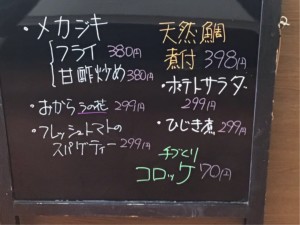 ・メカジキ
フライ 380円
甘酢炒め 380円
・おから うの花 299円
・フレッシュトマトの
スパゲティー 299円
天然鯛
煮付 398円
・ポテトサラダ
299円
・ひじき煮 299円
手づくり
コロッケ 70円